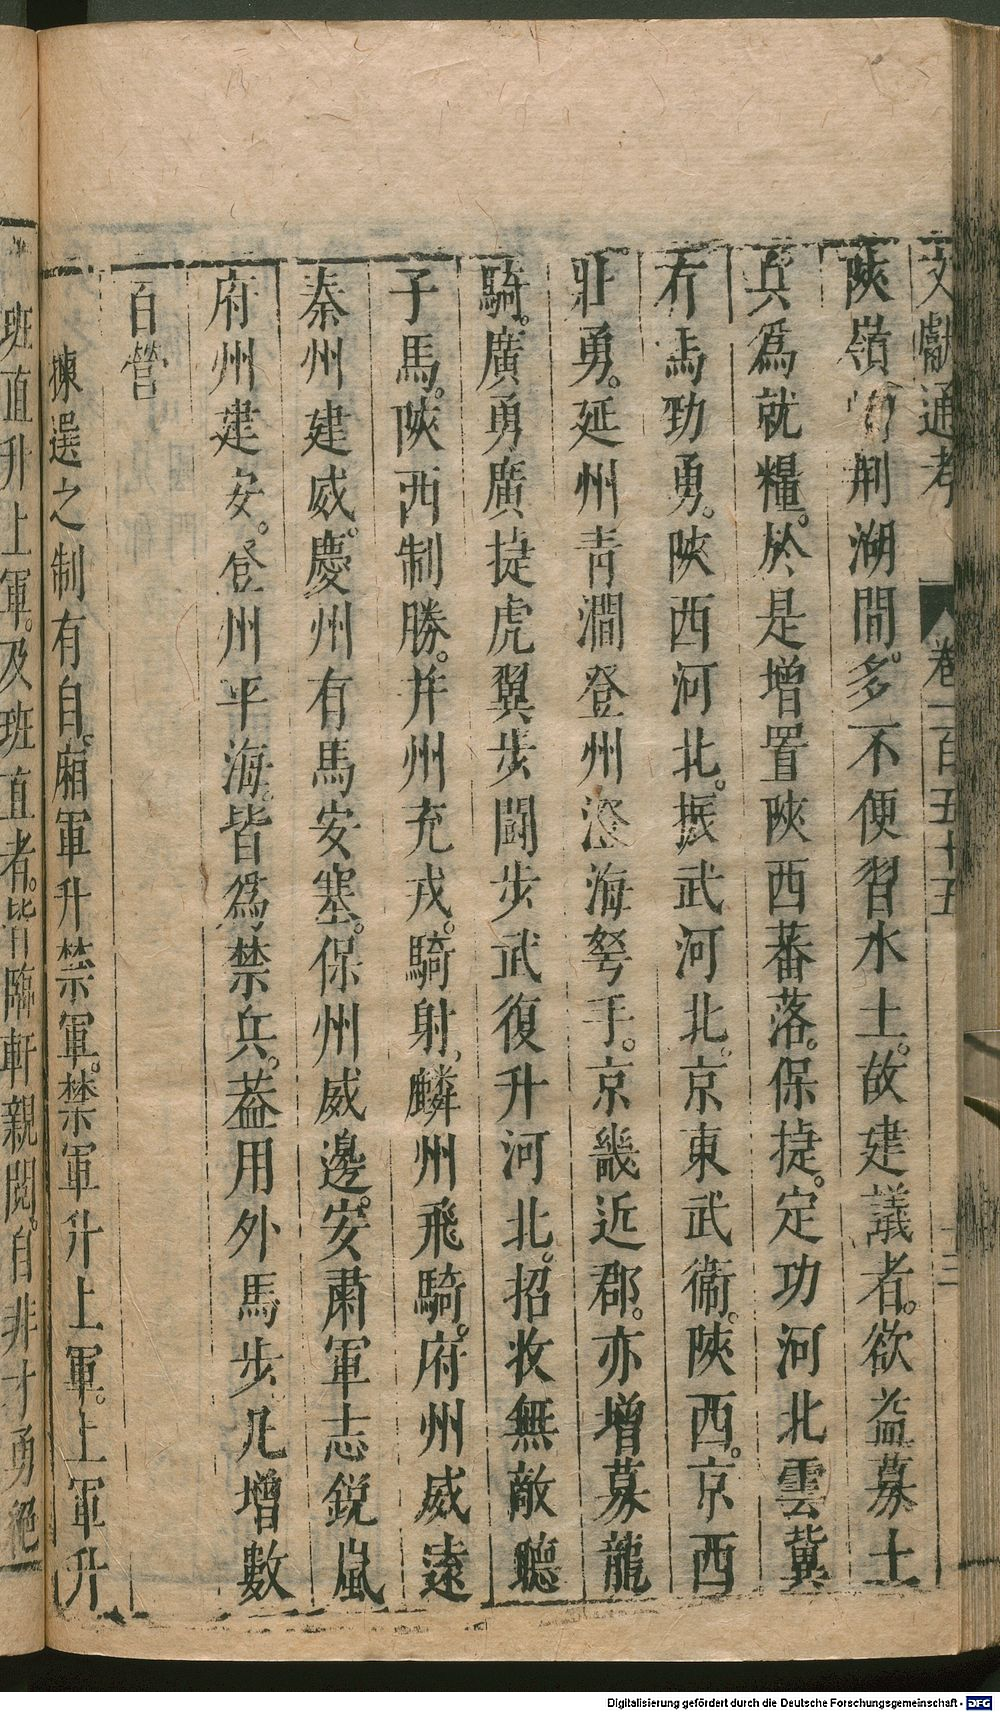 文獻通考 卷一百五十五 十三
陝嶺荊湖間多不便習水土。故建議者。欲益募土
兵爲就糧。於是增置陝西蕃落。保捷。定功河北雲冀
有馬勁勇。陝西河北。振武河北。京東武衞。陝西。京西
壯勇。延州青澗登州澄海弩手。京畿近郡。亦增募龍
騎。廣勇廣捷虎翼步鬭步武復升河北。招收無敵聽
子馬。陝西制勝。并州充戎。騎射。麟州飛騎。府州威遠
秦州建威。慶州有馬安塞。保州威邊。安肅軍志銳嵐
府州建安。登州平海。皆爲禁兵。葢用外馬步凡增數
百營
揀選之制有自。廂軍升禁軍。禁軍升上軍。上軍升
班直升上軍。及班直者。皆臨軒親閱。自非才勇絕
Digitalisierung gefördert durch die Deutsche Forschungsgemeinschaft - DFG